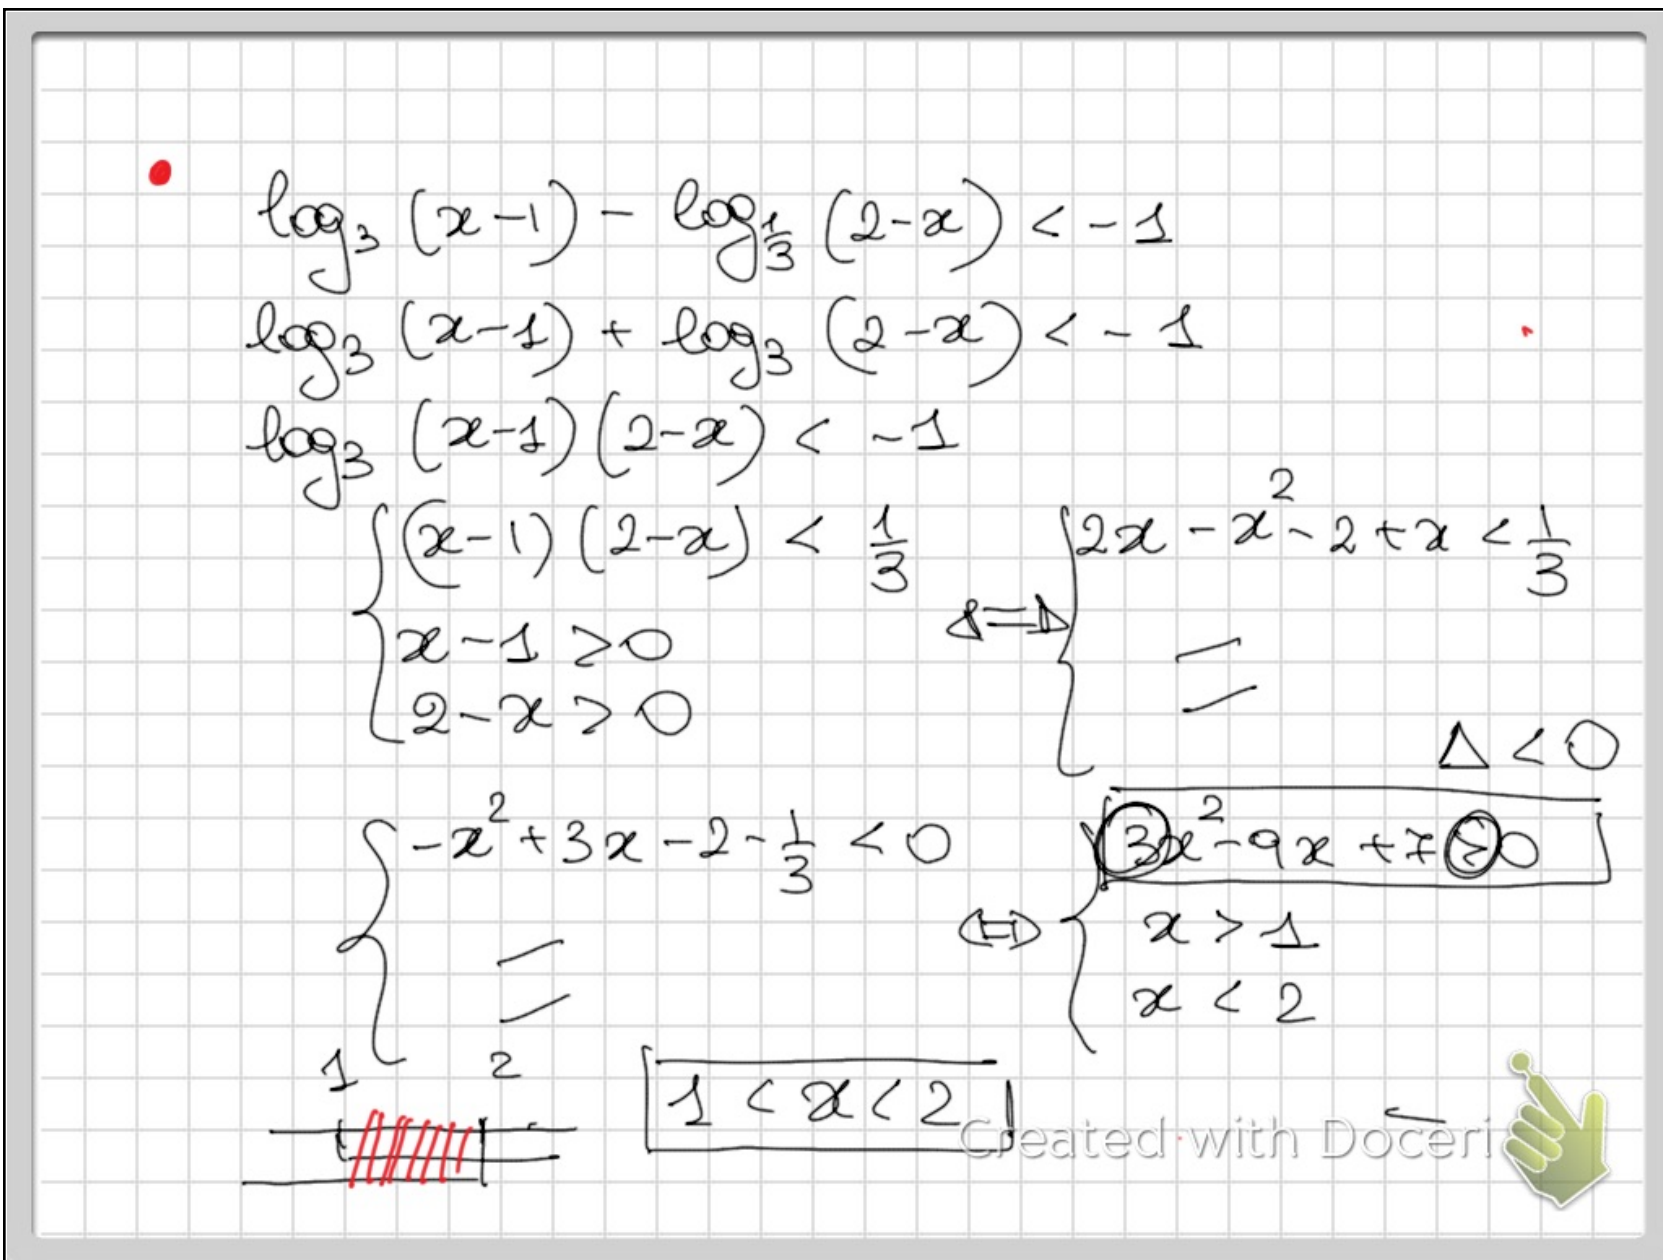 log₃ (x-1) - log_{1/3} (2-x) < -1
log₃ (x-1) + log₃ (2-x) < -1
log₃ (x-1)(2-x) < -1
{ (x-1)(2-x) < 1/3
x-1 > 0
2-x > 0
⇔ { 2x - x² - 2 + x < 1/3
=
Δ < 0
{ -x² + 3x - 2 - 1/3 < 0
=
⇔ { 3x² - 9x + 7 > 0
x > 1
x < 2
1 2
1 < x < 2
Created with Doceri